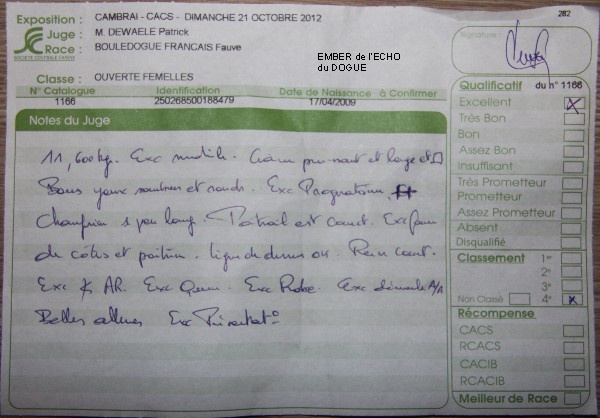 282
Exposition : CAMBRAI - CACS - DIMANCHE 21 OCTOBRE 2012
Juge : M. DEWAELE Patrick
Race : BOULEDOGUE FRANCAIS Fauve
SOCIETE CENTRALE CANINE
EMBER de l'ECHO
du DOGUE
Signature :
Classe : OUVERTE FEMELLES
N° Catalogue Identification Date de Naissance à Confirmer
1166 250268500188479 17/04/2009
Notes du Juge
11,600kg. Exc modèle. Crâne et large et
Bons yeux sombres et ronds. Exc Prognatisme.
Champion long. Poitrail est court. Exc
de côtes et poitrine. Ligne de dessus ok. Rein court.
Exc AR. Exc Queue. Exc Robe. Exc démarche A/A
Belles allures Exc Présentat°
Qualificatif du n° 1166
Excellent X
Très Bon
Bon
Assez Bon
Insuffisant
Très Prometteur
Prometteur
Assez Prometteur
Absent
Disqualifié
Classement 1er
2e
3e
Non Classé 4e X
Récompense
CACS
RCACS
CACIB
RCACIB
Meilleur de Race